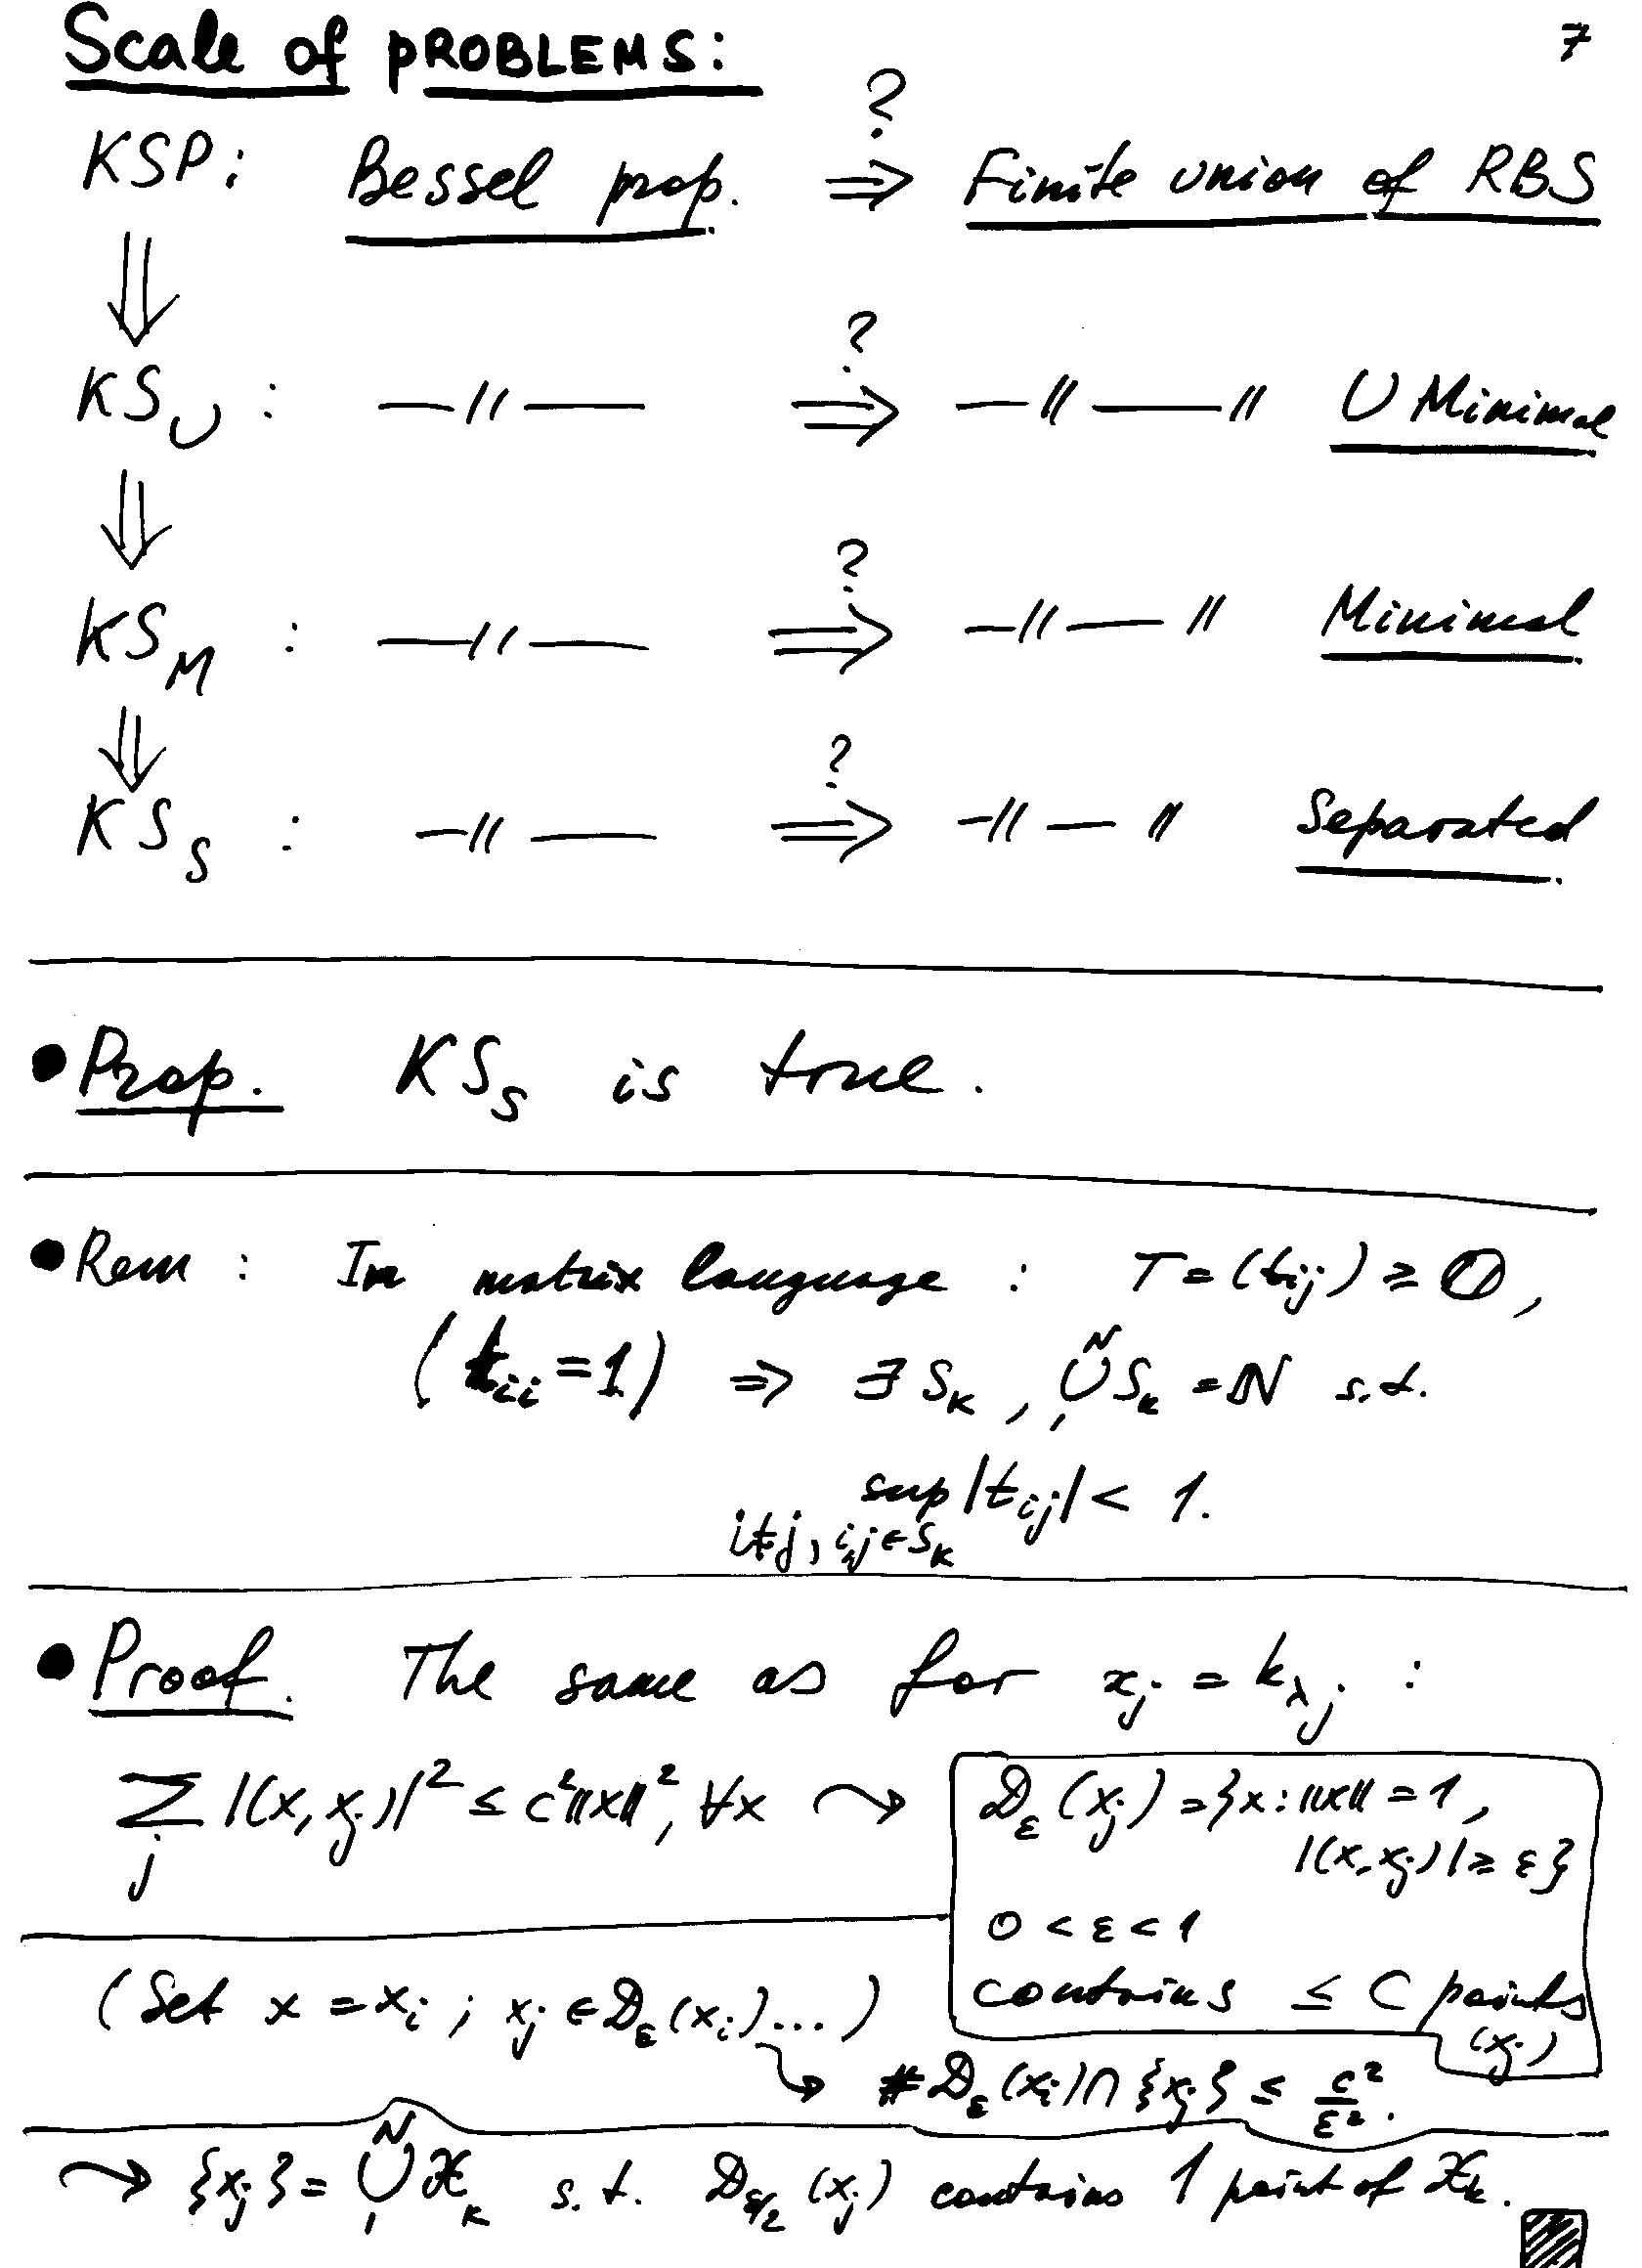 Scale of PROBLEMS: 7
KSP: Bessel prop. ?⇒ Finite union of RBS
⇓
KS_U : —//— ?⇒ —//—// U Minimal
⇓
KS_M : —//— ?⇒ —//—// Minimal
⇓
KS_S : —//— ?⇒ —//—// Separated
• Prop. KS_S is true.
• Rem : In matrix language : T = (t_ij) ≥ 0,
(t_ii = 1) ⇒ ∃ S_k, ∪_1^N S_k = ℕ s.t.
sup |t_ij| < 1.
i≠j, i,j ∈ S_k
• Proof. The same as for x_j = k_λj :
∑_j |(x, x_j)|² ≤ c²‖x‖², ∀x ↝ D_ε(x_j) = {x : ‖x‖ = 1,
|(x, x_j)| ≥ ε}
0 < ε < 1
contains ≤ C points
(x_j)
(Set x = x_i ; x_j ∈ D_ε(x_i)...)
↝ # D_ε(x_i) ∩ {x_j} ≤ c²/ε².
↝ {x_j} = ∪_1^N 𝒳_k s.t. D_ε/2(x_j) contains 1 point of 𝒳_k.